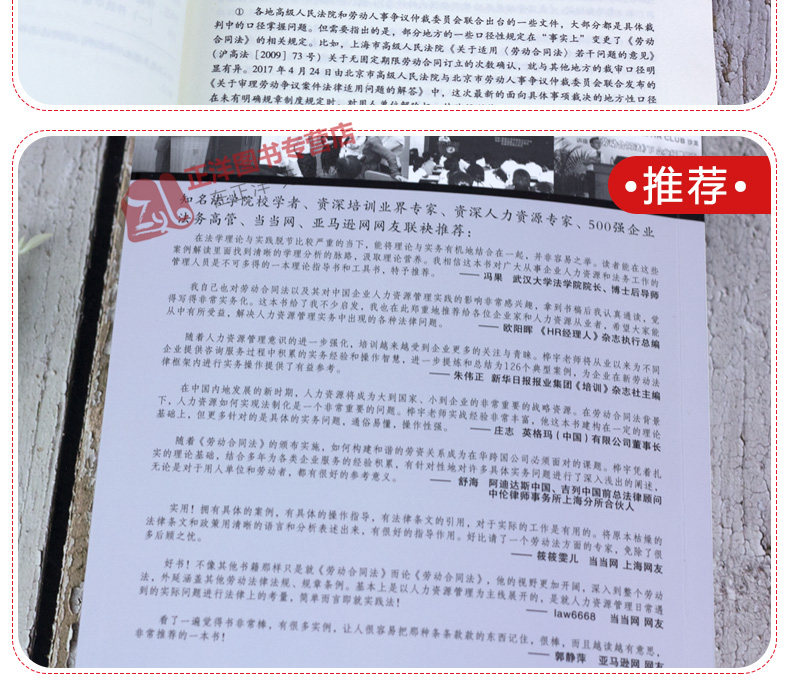 ① 各地高级人民法院和劳动人事争议仲裁委员会联合出台的一些文件，大部分都是具体裁
判中的口径掌握问题。但需要指出的是，部分地方的一些口径性规定在“事实上”变更了《劳动
合同法》的相关规定。比如，上海市高级人民法院《关于适用〈劳动合同法〉若干问题的意见》
（沪高法［2009］73号）关于无固定期限劳动合同订立的次数确认，就与其他地方的裁审口径明
显有异。2017年4月24日由北京市高级人民法院与北京市劳动人事争议仲裁委员会联合发布的
《关于审理劳动争议案件法律适用问题的解答》中，这次最新的面向具体事项裁决的地方性口径
在未有明确规章制度规定时，对用人单位解
正洋图书专营店
推荐
知名法学院校学者、资深培训业界专家、资深人力资源专家、500强企业
法务高管、当当网、亚马逊网网友联袂推荐：
在法学理论与实践脱节比较严重的当下，能将理论与实务有机地结合在一起，并非容易之举。读者能在这些
案例解读里面找到清晰的学理分析的脉路，汲取理论营养。我相信这本书对广大从事企业人力资源和法务工作的
管理人员是不可多得的一本理论指导书和工具书，特予推荐。 —— 冯果 武汉大学法学院院长、博士后导师
我自己也对劳动合同法以及其对中国企业人力资源管理实践的影响非常感兴趣，拿到书稿后我认真通读，觉
得写得非常实务化。这本书给了我不少启发，我也在此郑重地推荐给各位企业家和人力资源从业者，希望大家能
从中有所受益，解决人力资源管理实务中出现的各种法律问题。 —— 欧阳晖 《HR经理人》杂志执行总编
随着人力资源管理意识的进一步强化，培训越来越受到企业更多的关注与青睐。桦宇老师将从业以来为不同
企业提供咨询服务过程中积累的实务经验和操作智慧，进一步提炼和总结为126个典型案例，为企业在新劳动法
律框架内进行实务操作提供了有益参考。 —— 朱伟正 新华日报报业集团《培训》杂志社主编
在中国内地发展的新时期，人力资源将成为大到国家、小到企业的非常重要的战略资源。在劳动合同法背景
下，人力资源如何实现法制化是一个非常重要的问题。桦宇老师实战经验非常丰富，他这本书建构在一定的理论
基础上，但更多针对的是具体的实务问题，通俗易懂，操作性强。 —— 庄志 英格玛（中国）有限公司董事长
随着《劳动合同法》的颁布实施，如何构建和谐的劳资关系成为在华跨国公司必须面对的课题。桦宇凭着扎
实的理论基础，结合多年为各类企业服务的经验积累，有针对性地对许多具体实务问题进行了深入浅出的阐述，
无论是对于用人单位和劳动者，都有很好的参考意义。 —— 舒海 阿迪达斯中国、吉列中国前总法律顾问
中伦律师事务所上海分所合伙人
实用！拥有具体的案例，有具体的操作指导，有法律条文的引用，对于实际的工作是有用的。将原本枯燥的
法律条文和政策用清晰的语言和分析表述出来，有很好的指导作用。好比请了一个劳动法方面的专家，免除了很
多后顾之忧。 —— 筱筱雯儿 当当网 上海网友
好书！不像其他书籍那样只是就《劳动合同法》而论《劳动合同法》，他的视野更加开阔，深入到整个劳动
法，外延涵盖其他劳动法律法规、规章条例。基本上是以人力资源管理为主线展开的，是就人力资源管理日常遇
到的实际问题进行法律上的考量，简单而言即就实践法！ —— law6668 当当网 网友
看了一遍觉得书非常棒，有很多实例，让人很容易把那种条条款款的东西记住，很棒，而且越读越有意思，
非常推荐的一本书！ —— 郭静萍 亚马逊网 网友